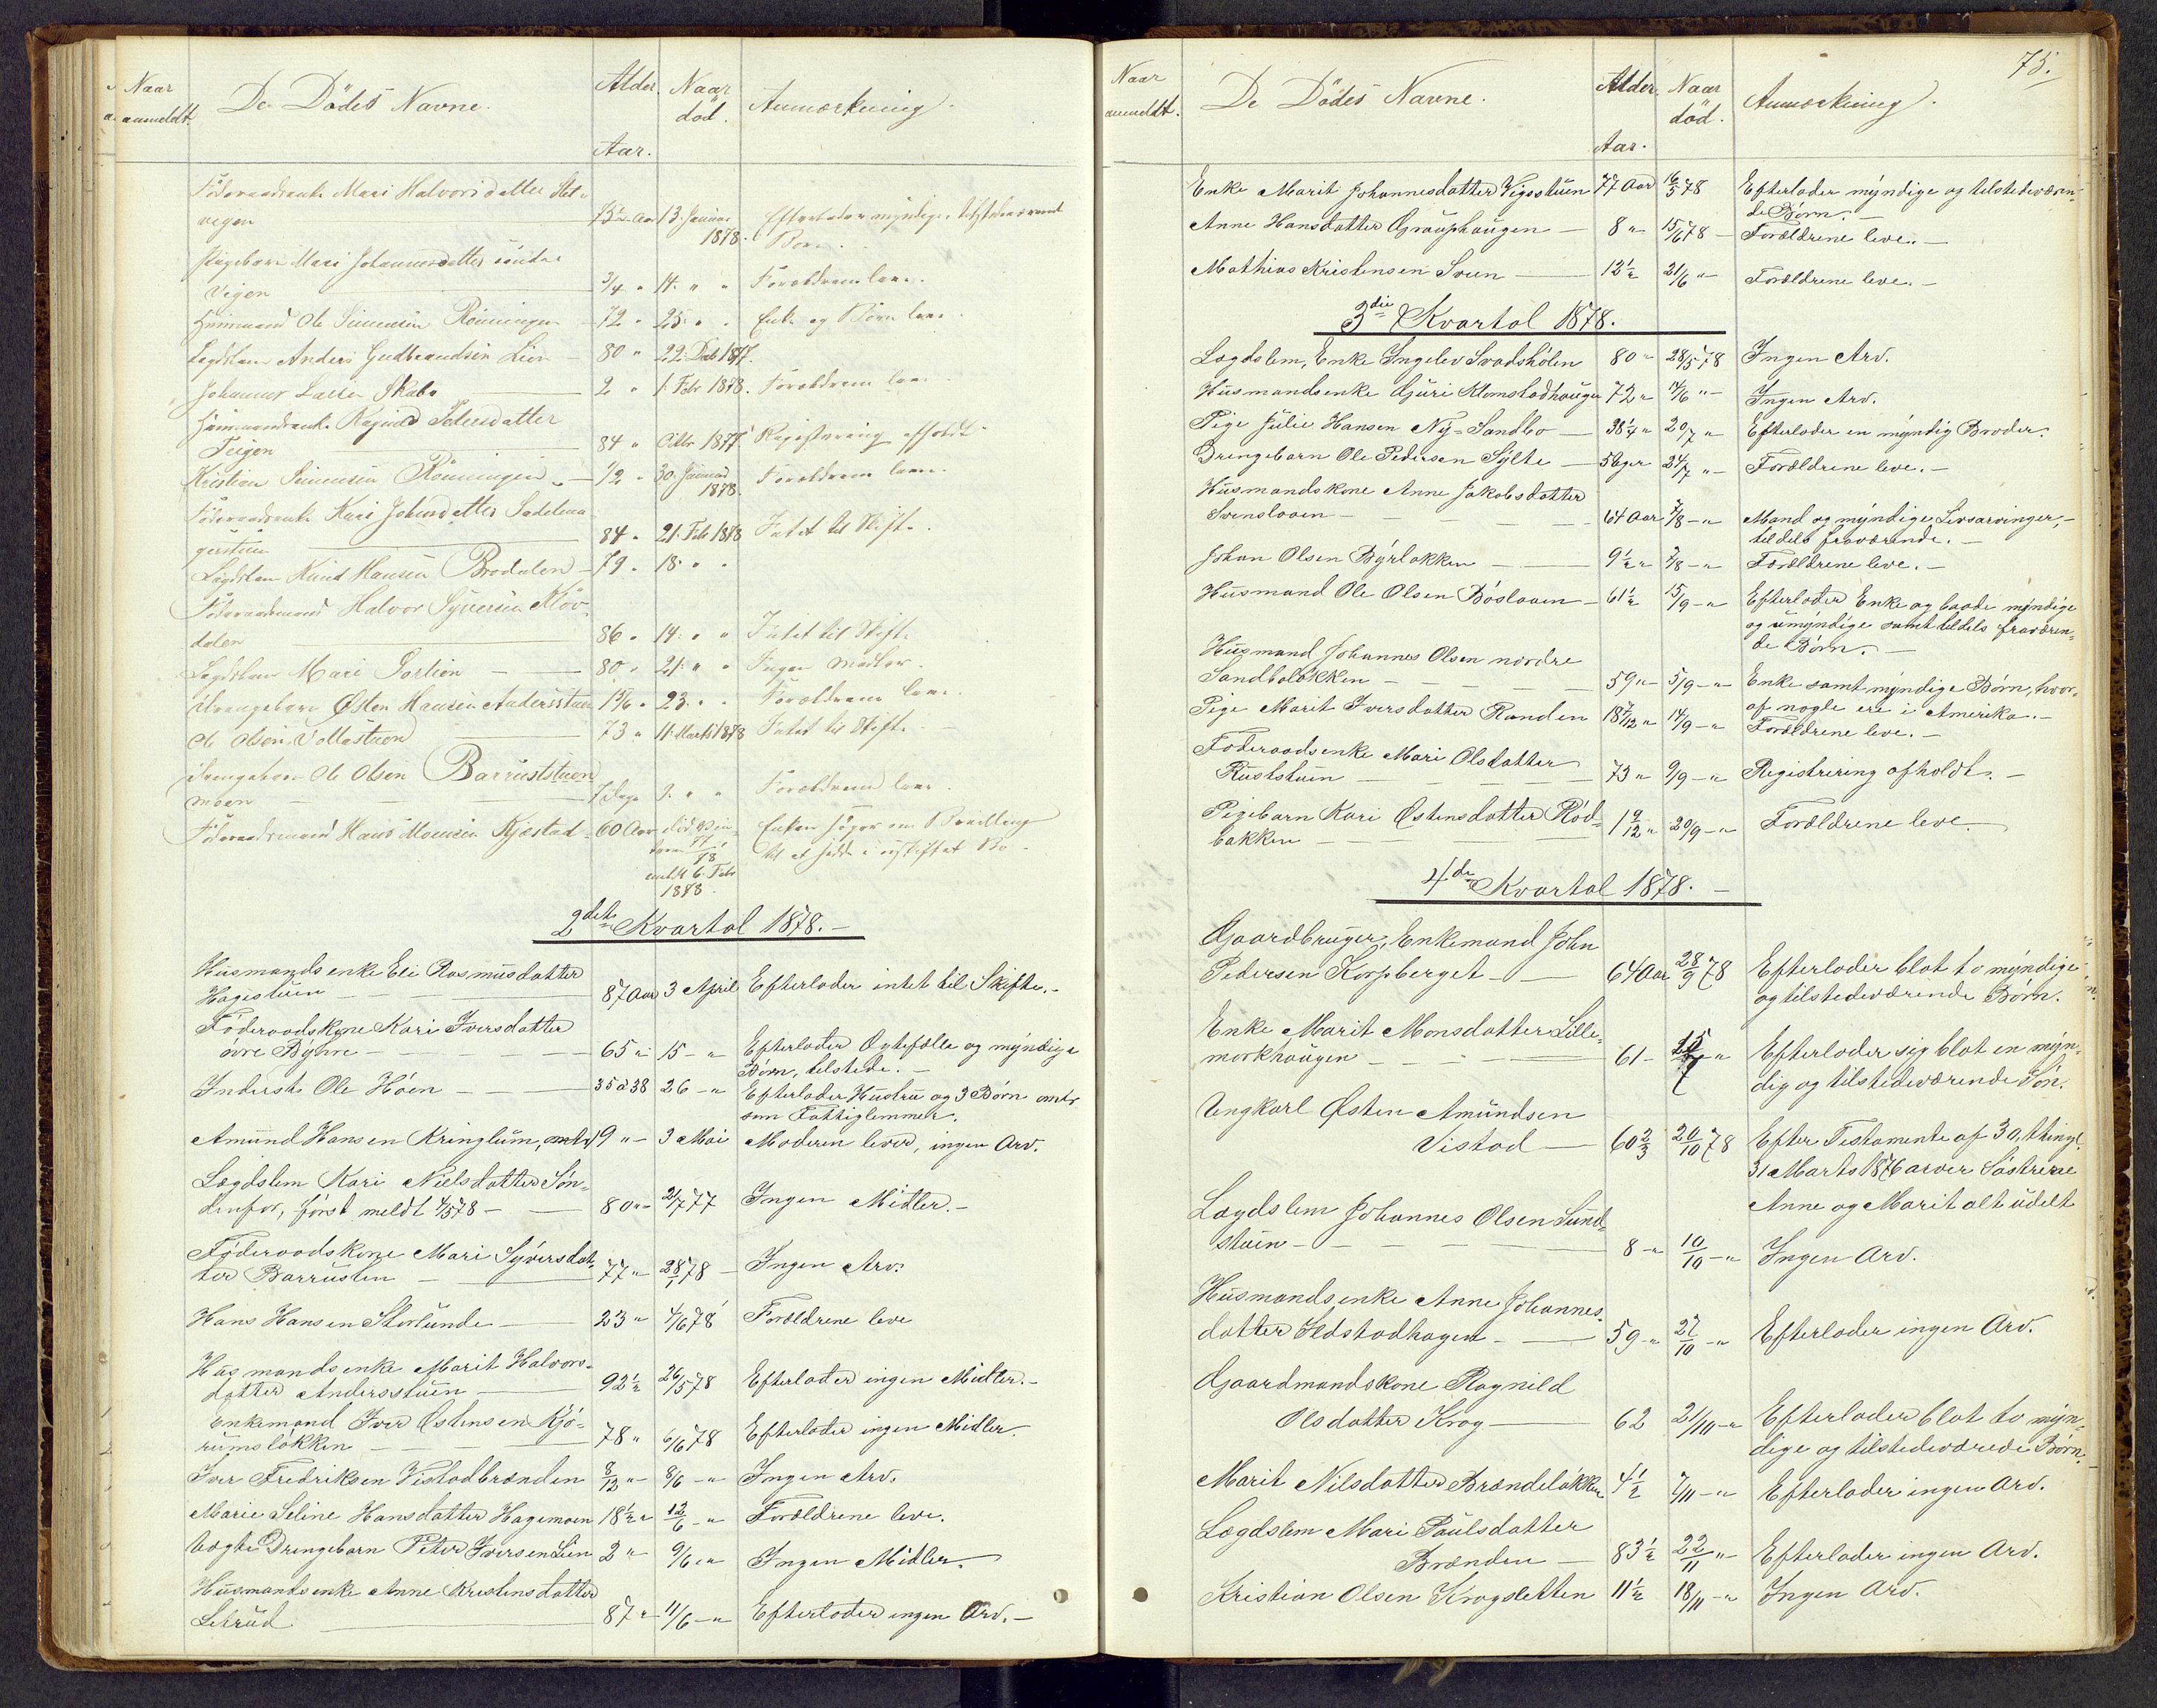 Naar
anmeldt.
De Dödes Navne.
Alder.
Aar.
Naar
död.
Anmærkning.
Föderaadsenke Mari Halvorsdatter
vegen 73½ Aar 13. Januar Efterlader myndige, tilstedeværende
1878. Børn.
Pigebarn Mari Johannesdatter søndre
Vigen 3/4 " 14. " " Forældrene leve.
Husmand Ole Simensen Rönningen 72 " 25. " " Enke og Börn leve.
Lægdslem Anders Gudbrandsen Lien 80 " 22. Deb 1877.
Johannes Larsen Skabo 2 " 1. Febr 1878. Forældrene leve.
Husmandsenke Ragnild Pedersdatter
84 " Octbr 1877 Registrering afholdt.
Kristian Simensen Rönningen 1/2 " 30. Januar Forældrene leve.
1878.
Föderaadsenke Kari Johnsdatter Sadelma
gerstuen 84 " 21. Febr 1878 Intet til Skifte.
Lægdslem Knud Hansen Brodalen 79 " 18. " "
Föderaadsmand Halvor Syversen Klöv
dalen 86 " 14. " " Intet til Skifte
Lægdslem Mari 80 " 21. " " Ingen Midler.
Drengebarn Østen Hansen Andersstuen 1 5/6 " 23. " " Forældrene leve.
Ole Olsen Vollastuen 73 " 11. Marts 1878 Intet til Skifte.
Drengebarn Ole Olsen Barruststuen
moen 1 Dage 9. " " Forældrene leve.
Föderaadsmand Hans Monsen Kjæstad 60 Aar död Vin Enken söger om Bevilling
teren 77/78, til at sidde i uskiftet Bo.
anmeldt 6. Febr
1878.
2det Kvartal 1878.
Husmandsenke Eli Rasmusdatter
Hagestuen 87 Aar 3 April Efterlader intet til Skifte.
Föderaadskone Kari Iversdatter
övre Byhre 65 " 15 - " Efterlader Ægtefælle og myndige
Børn, tilstede.
Inderste Ole Höen 35 à 38 26 - " Efterlader Hustru og 3 Børn omtr
som Fattiglemmer.
Amund Hansen Kringlum, omtr 19 " 3 Mai Moderen lever, ingen Arv.
Lægdslem Kari Nielsdatter Sön¬
denfor, först meldt 4/5 78 - 80 " 21/7 77 Ingen Midler.
Föderaadskone Mari Syversdat¬
ter Barrusten 77 " 28/1 78 Ingen Arv.
Hans Hansen Storlunde 23 " 4/6 78 Forældrene leve
Husmandsenke Marit Halvors¬
datter Andersstuen 92½ 26/5 78 Efterlader ingen Midler.
Enkemand Iver Østensen Kjö¬
rumslökken 78 " 6/6 78 Efterlader ingen Midler.
Iver Fredriksen Vistadbrænden 8/12 " 8/6 - " Ingen Arv.
Marie Seline Hansdatter Hagemoen 18½ " 12/6 - " Forældrene leve.
Uægte Drengebarn Peter Iversen Lien 2 " 9/6 - " Ingen Midler.
Husmandsenke Anne Kristensdatter
Letrud 87 " 11/6 - " Efterlader ingen Arv.
75.
Naar
anmeldt.
De Dödes Navne.
Alder.
Aar.
Naar
död.
Anmærkning.
Enke Marit Johannesdatter Vigsstuen 77 Aar 16/5 78 Efterlader myndige og tilstedeværen¬
de Børn.
Anne Hansdatter Grauphaugen 8 " 15/6 78 Forældrene leve.
Mathias Kristensen Sveen 12½ 21/6 " Forældrene leve.
3die Kvartal 1878.
Lægdslem, Enke Ingelev Svadshölen 80 " 28/5 78 Ingen Arv.
Husmandsenke Guri Klomstadhaugen 72 " 14/6 " Ingen Arv.
Pige Julie Hansen Ny-Sandbo 38¼ " 20/7 " Efterlader en myndig Broder.
Drengebarn Ole Pedersen Sylte 5 Uger 24/7 " Forældrene leve.
Husmandskone Anne Jakobsdatter
Svenslaaen 64 Aar 7/8 - " Mand og myndige Livsarvinger,
tildels fraværende.
Johan Olsen Byrløkken 9½ " 7/8 - " Forældrene leve.
Husmand Ole Olsen Böslaaen 61½ 15/9 - " Efterlader Enke og baade myndige
og umyndige samt tildels fraværen¬
de Børn.
Husmand Johannes Olsen nordre
Sandbolökken 59 " 5/9 - " Enke samt myndige Børn, hvor¬
af nogle ere i Amerika.
Pige Marit Iversdatter Randen 18 7/12 " 14/9 - " Forældrene leve.
Föderaadsenke Mari Olsdatter
Ruststuen 73 " 9/9 - " Registrering afholdt.
Pigebarn Kari Østensdatter Röd¬
bakken 1 9/12 " 20/9 - " Forældrene leve.
4de Kvartal 1878.
Gaardbruger, Enkemand John
Pedersen Korpberget 64 Aar 28/9 78 Efterlader blot to myndige
og tilstedeværende Börn.
Enke Marit Monsdatter Lille¬
morkhaugen 61 - " Efterlader sig blot en myn¬
dig og tilstedeværende Sön.
Ungkarl Østen Amundsen
Vistad 60⅔ 20/10 78 Efter Testamente af 30, thingl.
31 Marts 1876 arver Söstrene
Anne og Marit alt udelt
Lægdslem Johannes Olsen Sund¬
stuen 8 - " 10/10 - " Ingen Arv.
Husmandsenke Anne Johannes¬
datter Ildstadhagen 59 - " 27/10 - " Efterlader ingen Arv.
Gaardmandskone Ragnild
Olsdatter Krog 62 21/10 - " Efterlader blot to myn¬
dige og tilstedeværede Børn.
Marit Nilsdatter Brændelökken 4½ 7/11 - " Efterlader ingen Arv.
Lægdslem Mari Paulsdatter
Brænden 83½ 22/11 " Efterlader ingen Arv.
Kristian Olsen Krogsletten 11½ 18/11 - " Ingen Arv.